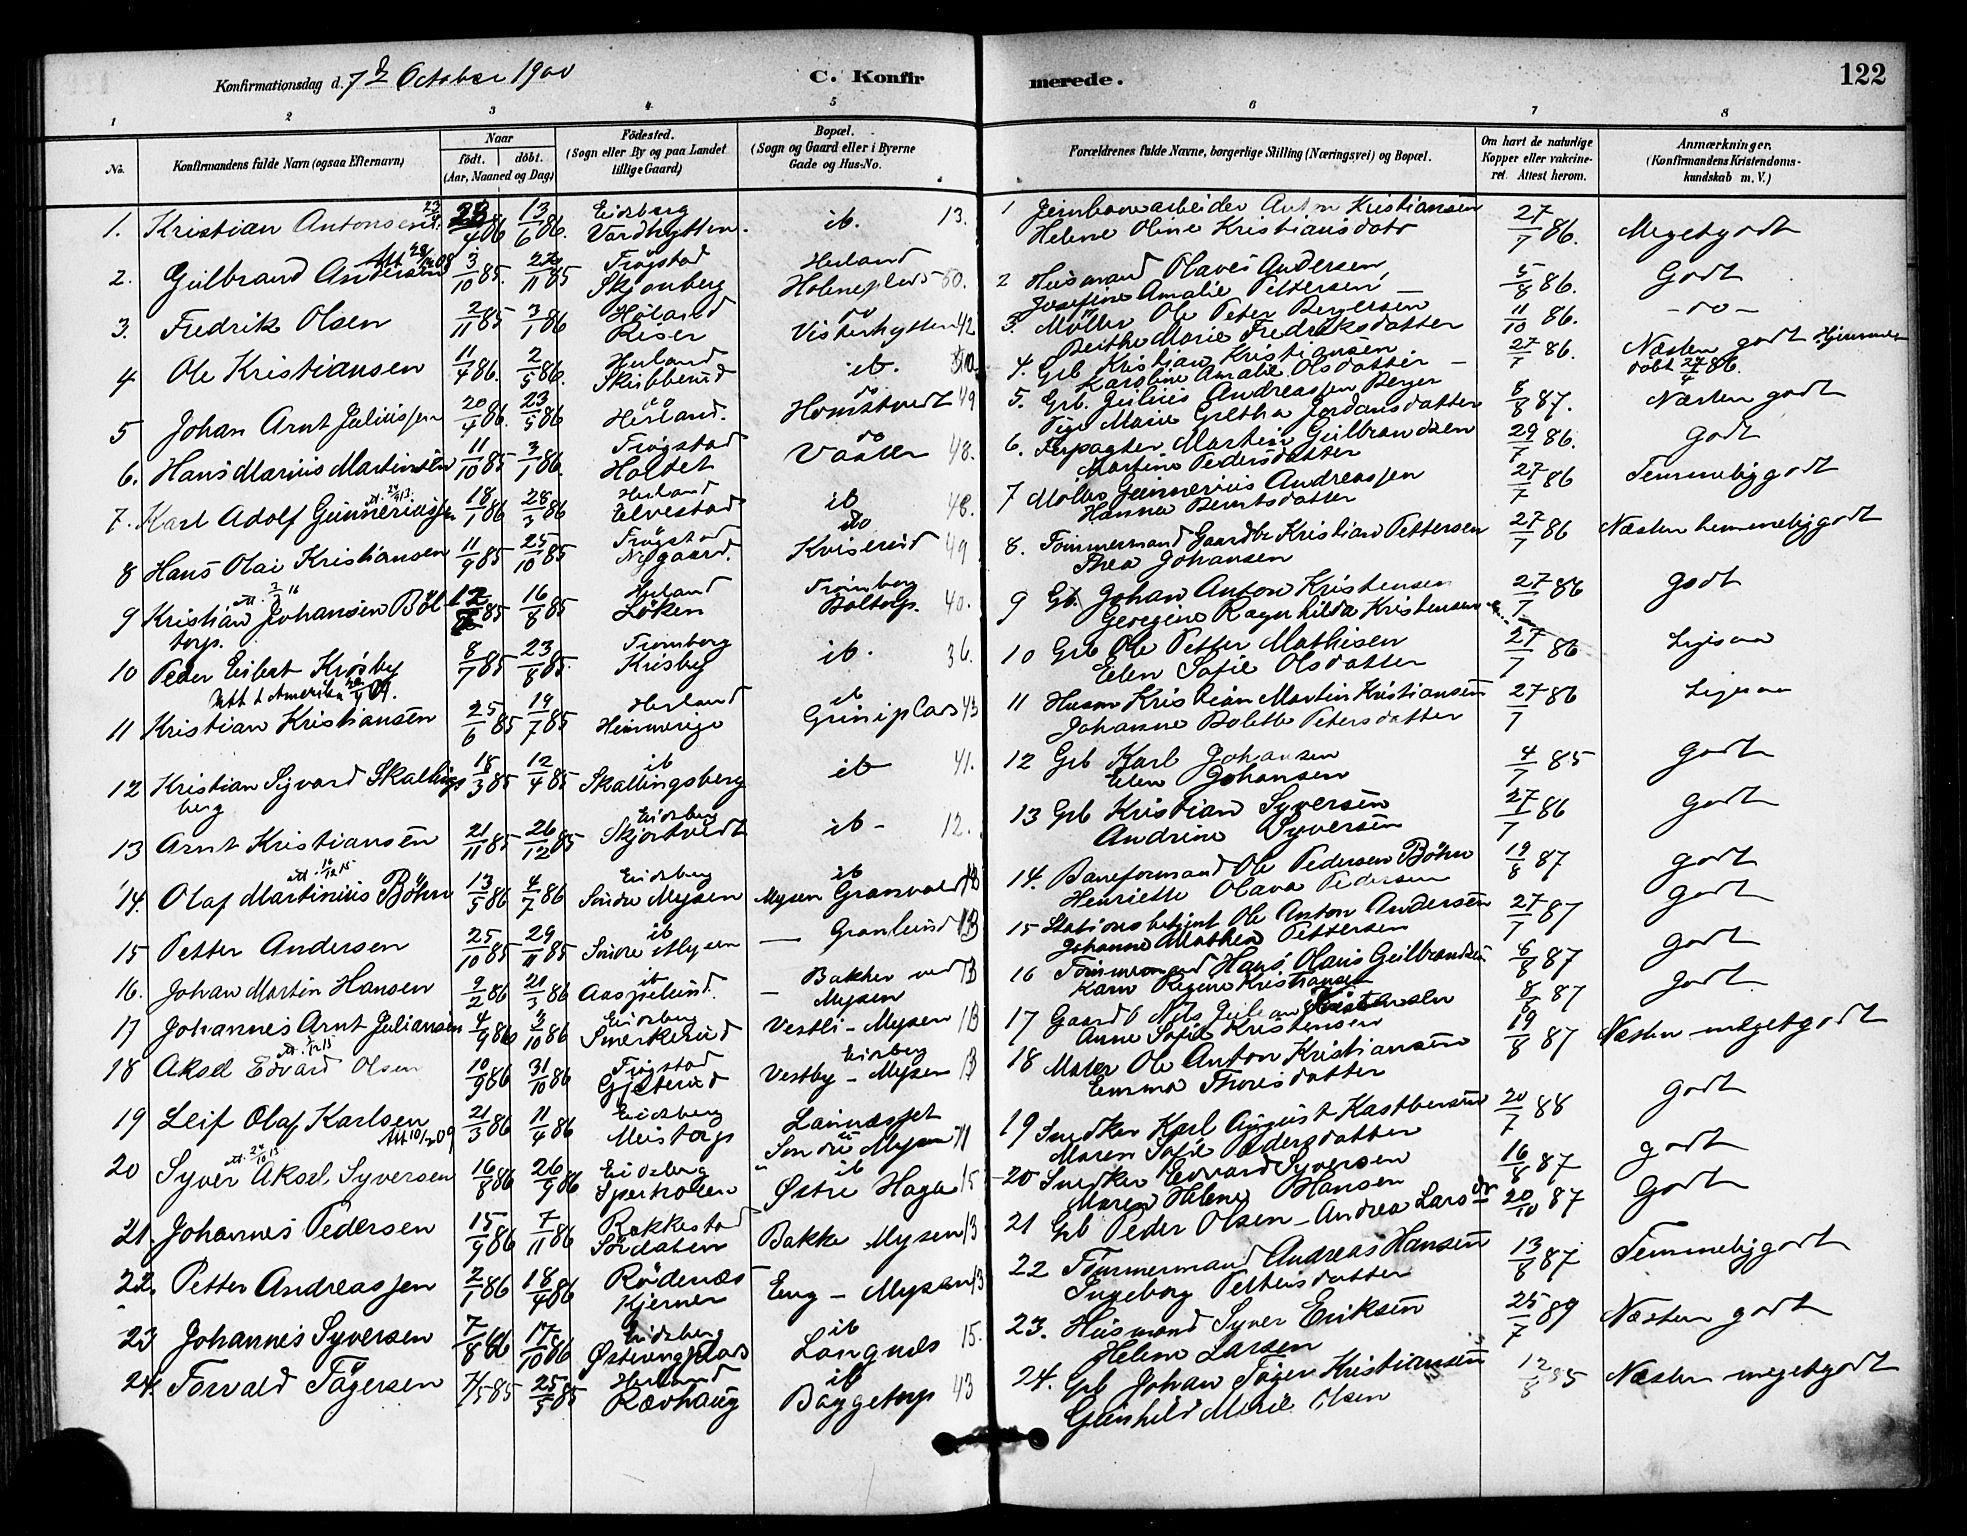 Konfirmationsdag d. 7de October 1900
C. Konfirmerede.
122
1 2 3 4 5 6 7 8
No.
Konfirmandens fulde Navn (ogsaa Efternavn)
Naar födt. döbt. (Aar, Maaned og Dag)
Födested. (Sogn eller By og paa Landet tillige Gaard)
Bopæl. (Sogn og Gaard eller i Byerne Gade og Hus-No.
Forældrenes fulde Navne, borgerlige Stilling (Næringsvei) og Bopæl.
Om havt de naturlige Kopper eller vakcineret. Attest herom.
Anmærkninger. (Konfirmandens Kristendomskundskab m. V.)
1. Kristian Antonsen 13/6 86. Eidsberg Vardhytten. ib. 13. 1 Jernbanearbeider Anton Kristiansen Helene Oline Kristiansdatr 27/7 86. Megetgodt
2. Gulbrand Andersen 3/10 85. 22/11 85 Trøgstad Skjønberg Herland 50. 2 Husmand Olaves Andersen, Josefine Amalie Pettersen 5/8 86. Godt
3. Fredrik Olsen 2/11 85 3/1 86 Höland Riser do Visterhytten 42 3. Möller Ole Peter Bergersen Berthe Marie Fredriksdatter 11/10 86. -do-
4 Ole Kristiansen 11/4 86. 2/5 86. Herland Skubberud ib. 4. Grb Kristian Kristiansen Karoline Amalie Olsdatter 27/7 86. Næsten godt Hjemmedöbt 24/4 86.
5 Johan Arnt Juliussen 20/4 86. 23/5 86 do Herland. do Homstvedt 49 5. Grb. Julius Andreassen Berger Pige Marie Grethe Jordansdatter 8/8 87. Næsten godt
6. Hans Marius Martinsen 11/10 85 3/1 86 Trøgstad Holtet do 48. 6. Forpagter Martin Gulbrandsen Martine Pedersdatter 29/7 86. godt
7. Karl Adolf Gunneriussen 18/1 86 28/3 86 Herland Elvestad ib 48. 7 Möller Gunnerius Andreassen Hanna Berntsdatter 27/7 86 Temmeliggodt
8 Hans Olai Kristiansen 11/9 85 25/10 85 Trøgstad Nygaard. do Kviserud 49 8. Tömmermand Gaardbr Kristian Pettersen Thea Johansen 27/7 86 Næsten temmeliggodt
9 Kristian Johansen Böltorp. 16/8 85 Herland Löken Trømborg Boltorp. 40. 9 Gb. Johan Anton Kristensen Georgine Ragnhilda Kristensen 27/7 86 godt
10 Peder Eibert Krosby 8/7 85 23/8 85. Trømborg Krisby ib. 36. 10 Grb Ole Petter Mathisen Elen Sofie Olsdatter 27/7 86 Ligesaa
Utfl t Amerika 09.
11 Kristian Kristiansen 25/6 85 19/7 85 Herland ib 43 11 Husm Kristian Martin Kristiansen Johanne Bolette Petersdatter 27/7 86 Ligesaa
12 Kristian Sigvard Skallingsberg 18/3 85 12/4 85 ib Skallingsberg ib 41. 12 Grb Karl Johansen Elen Johansen 4/7 85 godt
13 Arnt Kristiansen 21/11 85 26/12 85 Eidsberg Skjortvedt ib - 12. 13 Grb Kristian Syversen Andrine Syversen 27/7 86 godt
14. Olaf Martinius Böhn 13/5 86 4/7 86 Eidsberg Söndre Mysen ib Mysen Granvold 14. Baneformand Ole Pedersen Böhn Henriette Olava Pedersen 19/8 87 godt
15 Petter Andersen 25/10 85 29/11 85 ib Söndre Mysen — Granlund 15 Stationsbetjent Ole Anton Andersen Johanne Mathea Pettersen 27/7 87 godt
16. Johan Martin Hansen 9/2 86 21/3 86 ib Aaspelund. — Bakken ved Mysen 16 Tömmermand Hans Olaus Gulbrandsen Karen Regine Kristiansen 8/8 87 godt
17 Johannes Arnt Juliansen 4/9 86 3/10 86 Eidsberg Smerkerud Vestli - Mysen 17 Gaardb Nils Julian Kristensen Anne Sofie Kristensen 8/8 87 godt
18 Aksel Edvard Olsen 10/9 86 31/10 86 Trøgstad Gjeterud Eidsberg Vestby - Mysen 18 Maler Ole Anton Kristiansen Emma Thoresdatter 19/8 87 Næsten megetgodt
19 Leif Olaf Karlsen 21/3 86 11/4 86 Eidsberg Mustorp Söndre Mysen 19 Snedker Karl August Kastbersen Maren Sofie Pedersdatter 20/7 88 godt
20 Syver Aksel Syversen 16/8 86 26/9 86 Eidsberg ib Østre Haga 15 20 Snedker Edvard Syversen Maren Helene Hansen 16/8 87 godt
21. Johannes Pedersen 15/9 86 7/11 86 Rakkestad Bakke Mysen 13 21 Grb Peder Olsen - Andrea Larsdr 20/10 87 Godt
22. Petter Andreassen 2/1 86 18/4 86 Rödenæs Kjerner Eng - Mysen 13 22 Tömmermand Andreas Hansen Ingeborg Pettersdatter 13/8 87 Temmeliggodt
23 Johannes Syversen 7/8 86 17/10 86 Eidsberg ib Langnæs 15. 23. Husmand Syver Eriksen Helene Larsen 25/7 89 Næsten godt
24. Torvald Tögersen 7/5 85 25/5 85 Herland Rævhaug ib Baggetorp 43 24. Grb Johan Töger Kristiansen Gunhild Marie Olsen 12/8 85 Næsten megetgodt